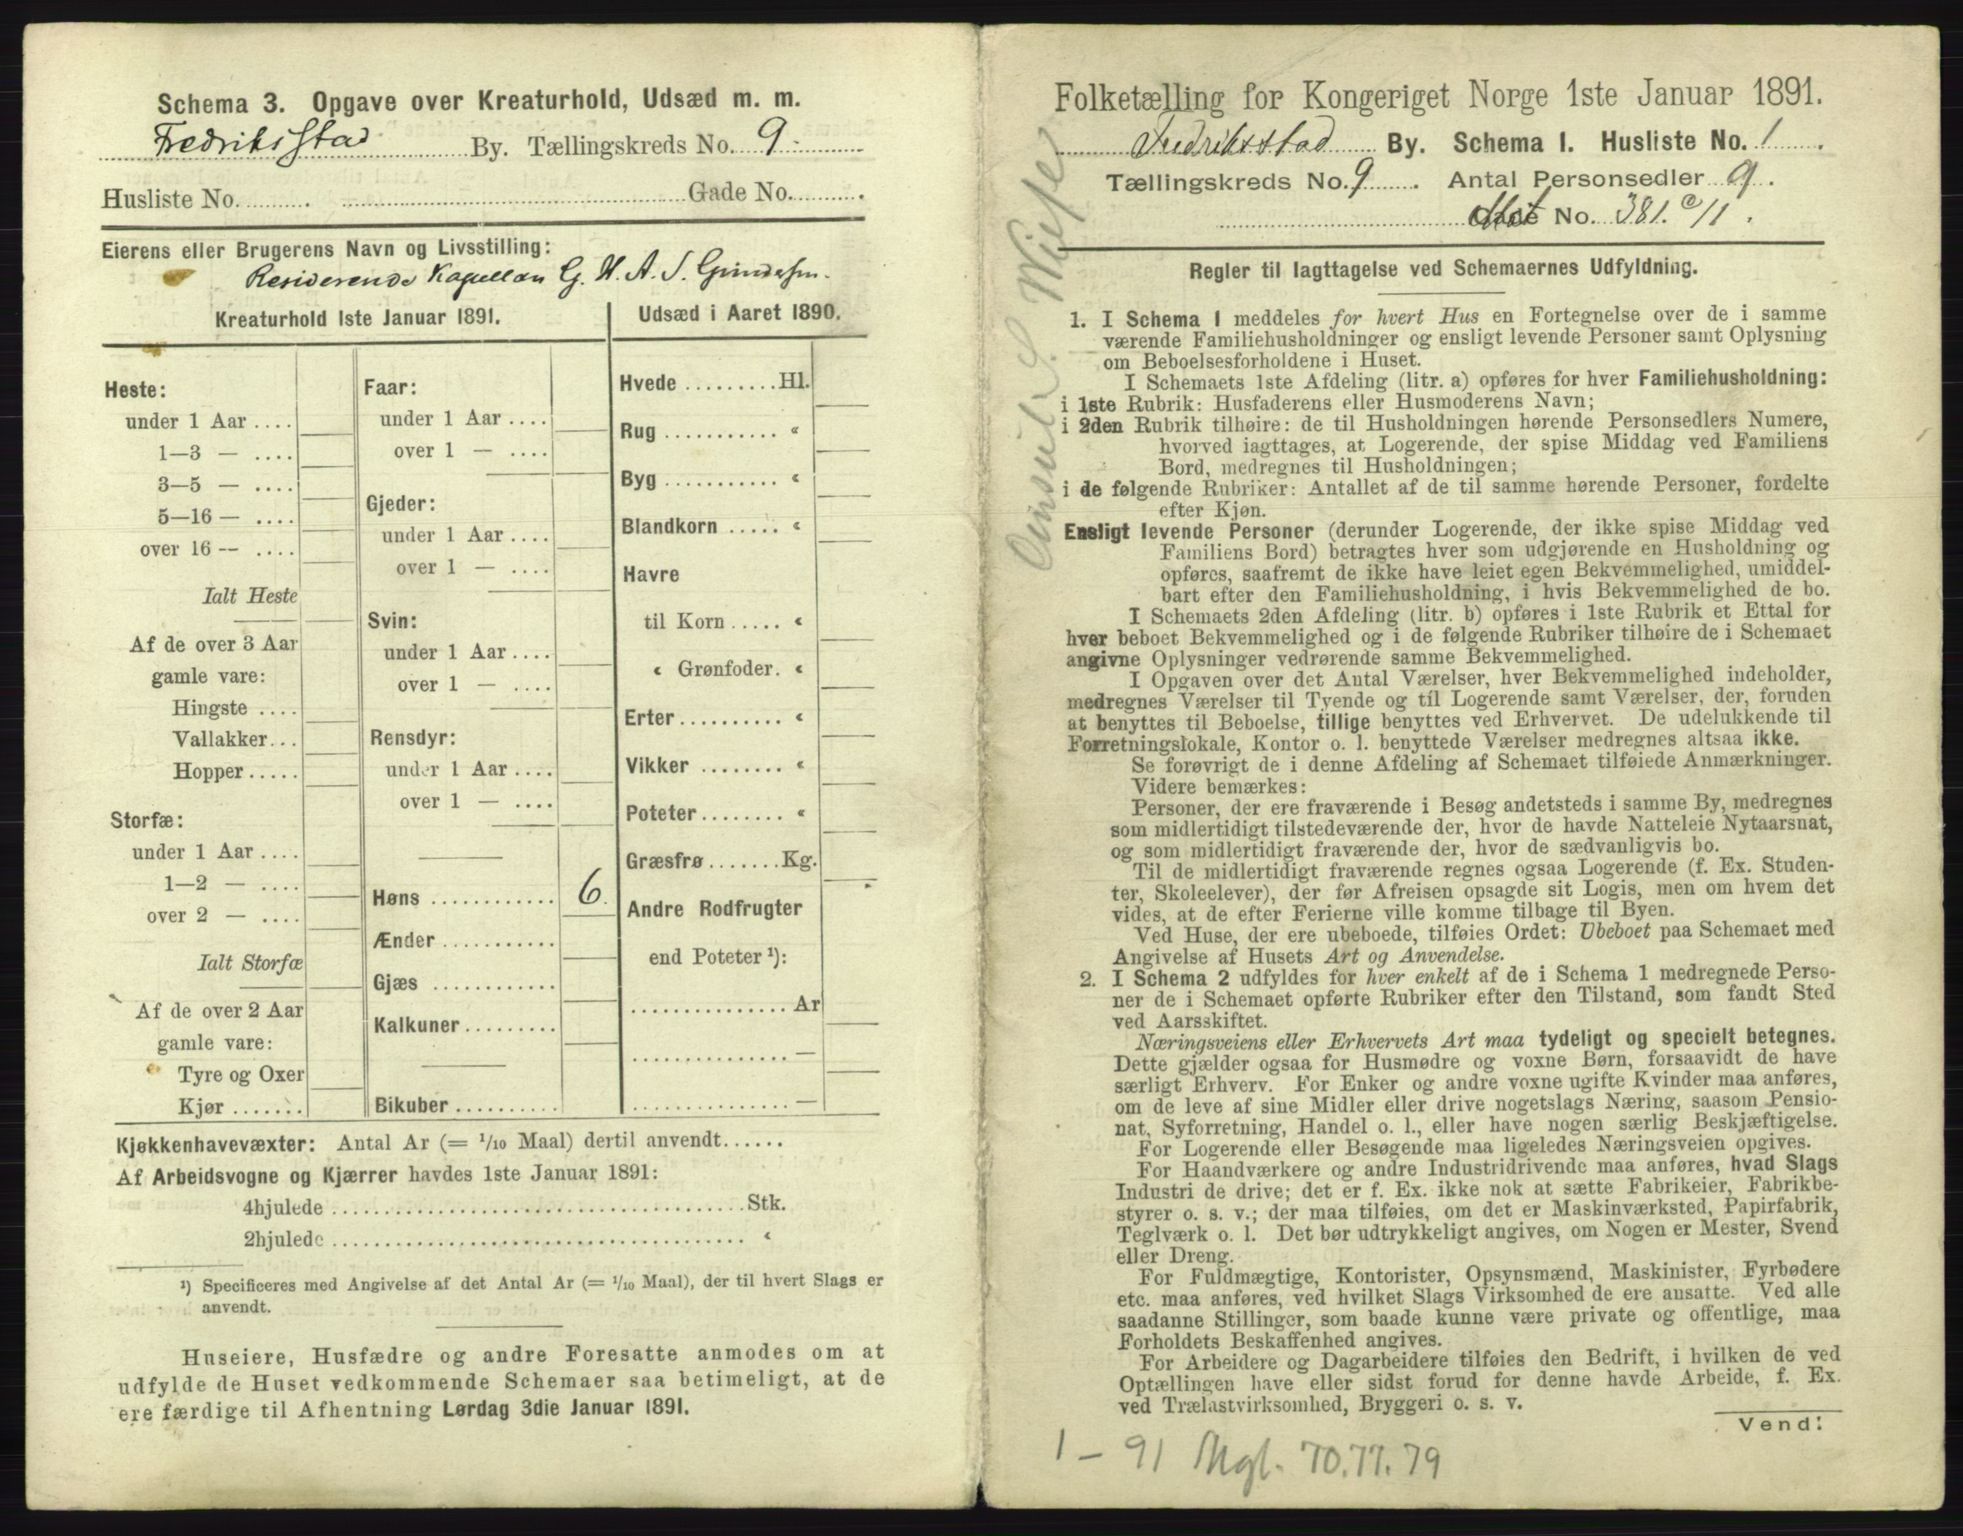 Schema 3. Opgave over Kreaturhold, Udsæd m. m.
Fredriksstad By. Tællingskreds No. 9.
Husliste No. . Gade No. .
Eierens eller Brugerens Navn og Livsstilling:
Residerende Kapellan G. H. A. S.
Kreaturhold 1ste Januar 1891.
Heste:
under 1 Aar ....
1—3 — ....
3—5 — ....
5—16 — ....
over 16 — ....
Ialt Heste
Af de over 3 Aar
gamle vare:
Hingste ....
Vallakker...
Hopper.....
Storfæ:
under 1 Aar ....
1—2 — ....
over 2 — ....
Ialt Storfæ
Af de over 2 Aar
gamle vare:
Tyre og Oxer
Kjør .......
Faar:
under 1 Aar ....
over 1 — ....
Gjeder:
under 1 Aar ....
over 1 — ....
Svin:
under 1 Aar ....
over 1 — ....
Rensdyr:
under 1 Aar ....
over 1 — ....
Høns ............ 6.
Ænder ...........
Gjæs ............
Kalkuner.........
Bikuber..........
Udsæd i Aaret 1890.
Hvede .........Hl.
Rug ........... «
Byg ........... «
Blandkorn ..... «
Havre
til Korn ..... «
« Grønfoder. «
Erter.......... «
Vikker ........ «
Poteter........ «
Græsfrø .......Kg.
Andre Rodfrugter
end Poteter ¹):
............... Ar
............... —
............... —
Kjøkkenhavevæxter: Antal Ar (= 1/10 Maal) dertil anvendt......
Af Arbeidsvogne og Kjærrer havdes 1ste Januar 1891:
4hjulede ......................................Stk.
2hjulede ...................................... «
¹) Specificeres med Angivelse af det Antal Ar (= 1/10 Maal), der til hvert Slags er
anvendt.
Huseiere, Husfædre og andre Foresatte anmodes om at
udfylde de Huset vedkommende Schemaer saa betimeligt, at de
ere færdige til Afhentning Lørdag 3die Januar 1891.
Folketælling for Kongeriget Norge 1ste Januar 1891.
Fredriksstad By. Schema I. Husliste No. 1.
Tællingskreds No. 9. Antal Personsedler 9.
Gade No. 381.c/1.
Regler til Iagttagelse ved Schemaernes Udfyldning.
1. I Schema 1 meddeles for hvert Hus en Fortegnelse over de i samme
værende Familiehusholdninger og ensligt levende Personer samt Oplysning
om Beboelsesforholdene i Huset.
I Schemaets 1ste Afdeling (litr. a) opføres for hver Familiehusholdning:
i 1ste Rubrik: Husfaderens eller Husmoderens Navn;
i 2den Rubrik tilhøire: de til Husholdningen hørende Personsedlers Numere,
hvorved iagttages, at Logerende, der spise Middag ved Familiens
Bord, medregnes til Husholdningen;
i de følgende Rubriker: Antallet af de til samme hørende Personer, fordelte
efter Kjøn.
Ensligt levende Personer (derunder Logerende, der ikke spise Middag ved
Familiens Bord) betragtes hver som udgjørende en Husholdning og
opføres, saafremt de ikke have leiet egen Bekvemmelighed, umiddel-
bart efter den Familiehusholdning, i hvis Bekvemmelighed de bo.
I Schemaets 2den Afdeling (litr. b) opføres i 1ste Rubrik et Ettal for
hver beboet Bekvemmelighed og i de følgende Rubriker tilhøire de i Schemaet
angivne Oplysninger vedrørende samme Bekvemmelighed.
I Opgaven over det Antal Værelser, hver Bekvemmelighed indeholder,
medregnes Værelser til Tyende og til Logerende samt Værelser, der, foruden
at benyttes til Beboelse, tillige benyttes ved Erhvervet. De udelukkende til
Forretningslokale, Kontor o. l. benyttede Værelser medregnes altsaa ikke.
Se forøvrigt de i denne Afdeling af Schemaet tilføiede Anmærkninger.
Videre bemærkes:
Personer, der ere fraværende i Besøg andetsteds i samme By, medregnes
som midlertidigt tilstedeværende der, hvor de havde Natteleie Nytaarsnat,
og som midlertidigt fraværende der, hvor de sædvanligvis bo.
Til de midlertidigt fraværende regnes ogsaa Logerende (f. Ex. Studen-
ter, Skoleelever), der før Afreisen opsagde sit Logis, men om hvem det
vides, at de efter Ferierne ville komme tilbage til Byen.
Ved Huse, der ere ubeboede, tilføies Ordet: Ubeboet paa Schemaet med
Angivelse af Husets Art og Anvendelse.
2. I Schema 2 udfyldes for hver enkelt af de i Schema 1 medregnede Perso-
ner de i Schemaet opførte Rubriker efter den Tilstand, som fandt Sted
ved Aarsskiftet.
Næringsveiens eller Erhvervets Art maa tydeligt og specielt betegnes.
Dette gjælder ogsaa for Husmødre og voxne Børn, forsaavidt de have
særligt Erhverv. For Enker og andre voxne ugifte Kvinder maa anføres,
om de leve af sine Midler eller drive nogetslags Næring, saasom Pensio-
nat, Syforretning, Handel o. l., eller have nogen særlig Beskjæftigelse.
For Logerende eller Besøgende maa ligeledes Næringsveien opgives.
For Haandværkere og andre Industridrivende maa anføres, hvad Slags
Industri de drive; det er f. Ex. ikke nok at sætte Fabrikeier, Fabrikbe-
styrer o. s. v.; der maa tilføies, om det er Maskinværksted, Papirfabrik,
Teglværk o. l. Det bør udtrykkeligt angives, om Nogen er Mester, Svend
eller Dreng.
For Fuldmægtige, Kontorister, Opsynsmænd, Maskinister, Fyrbødere
etc. maa anføres, ved hvilket Slags Virksomhed de ere ansatte. Ved alle
saadanne Stillinger, som baade kunne være private og offentlige, maa
Forholdets Beskaffenhed angives.
For Arbeidere og Dagarbeidere tilføies den Bedrift, i hvilken de ved
Optællingen have eller sidst forud for denne havde Arbeide, f. Ex.
ved Trælastvirksomhed, Bryggeri o. s. v.
Vend:
1 – 91 Mgl. 70.77.79